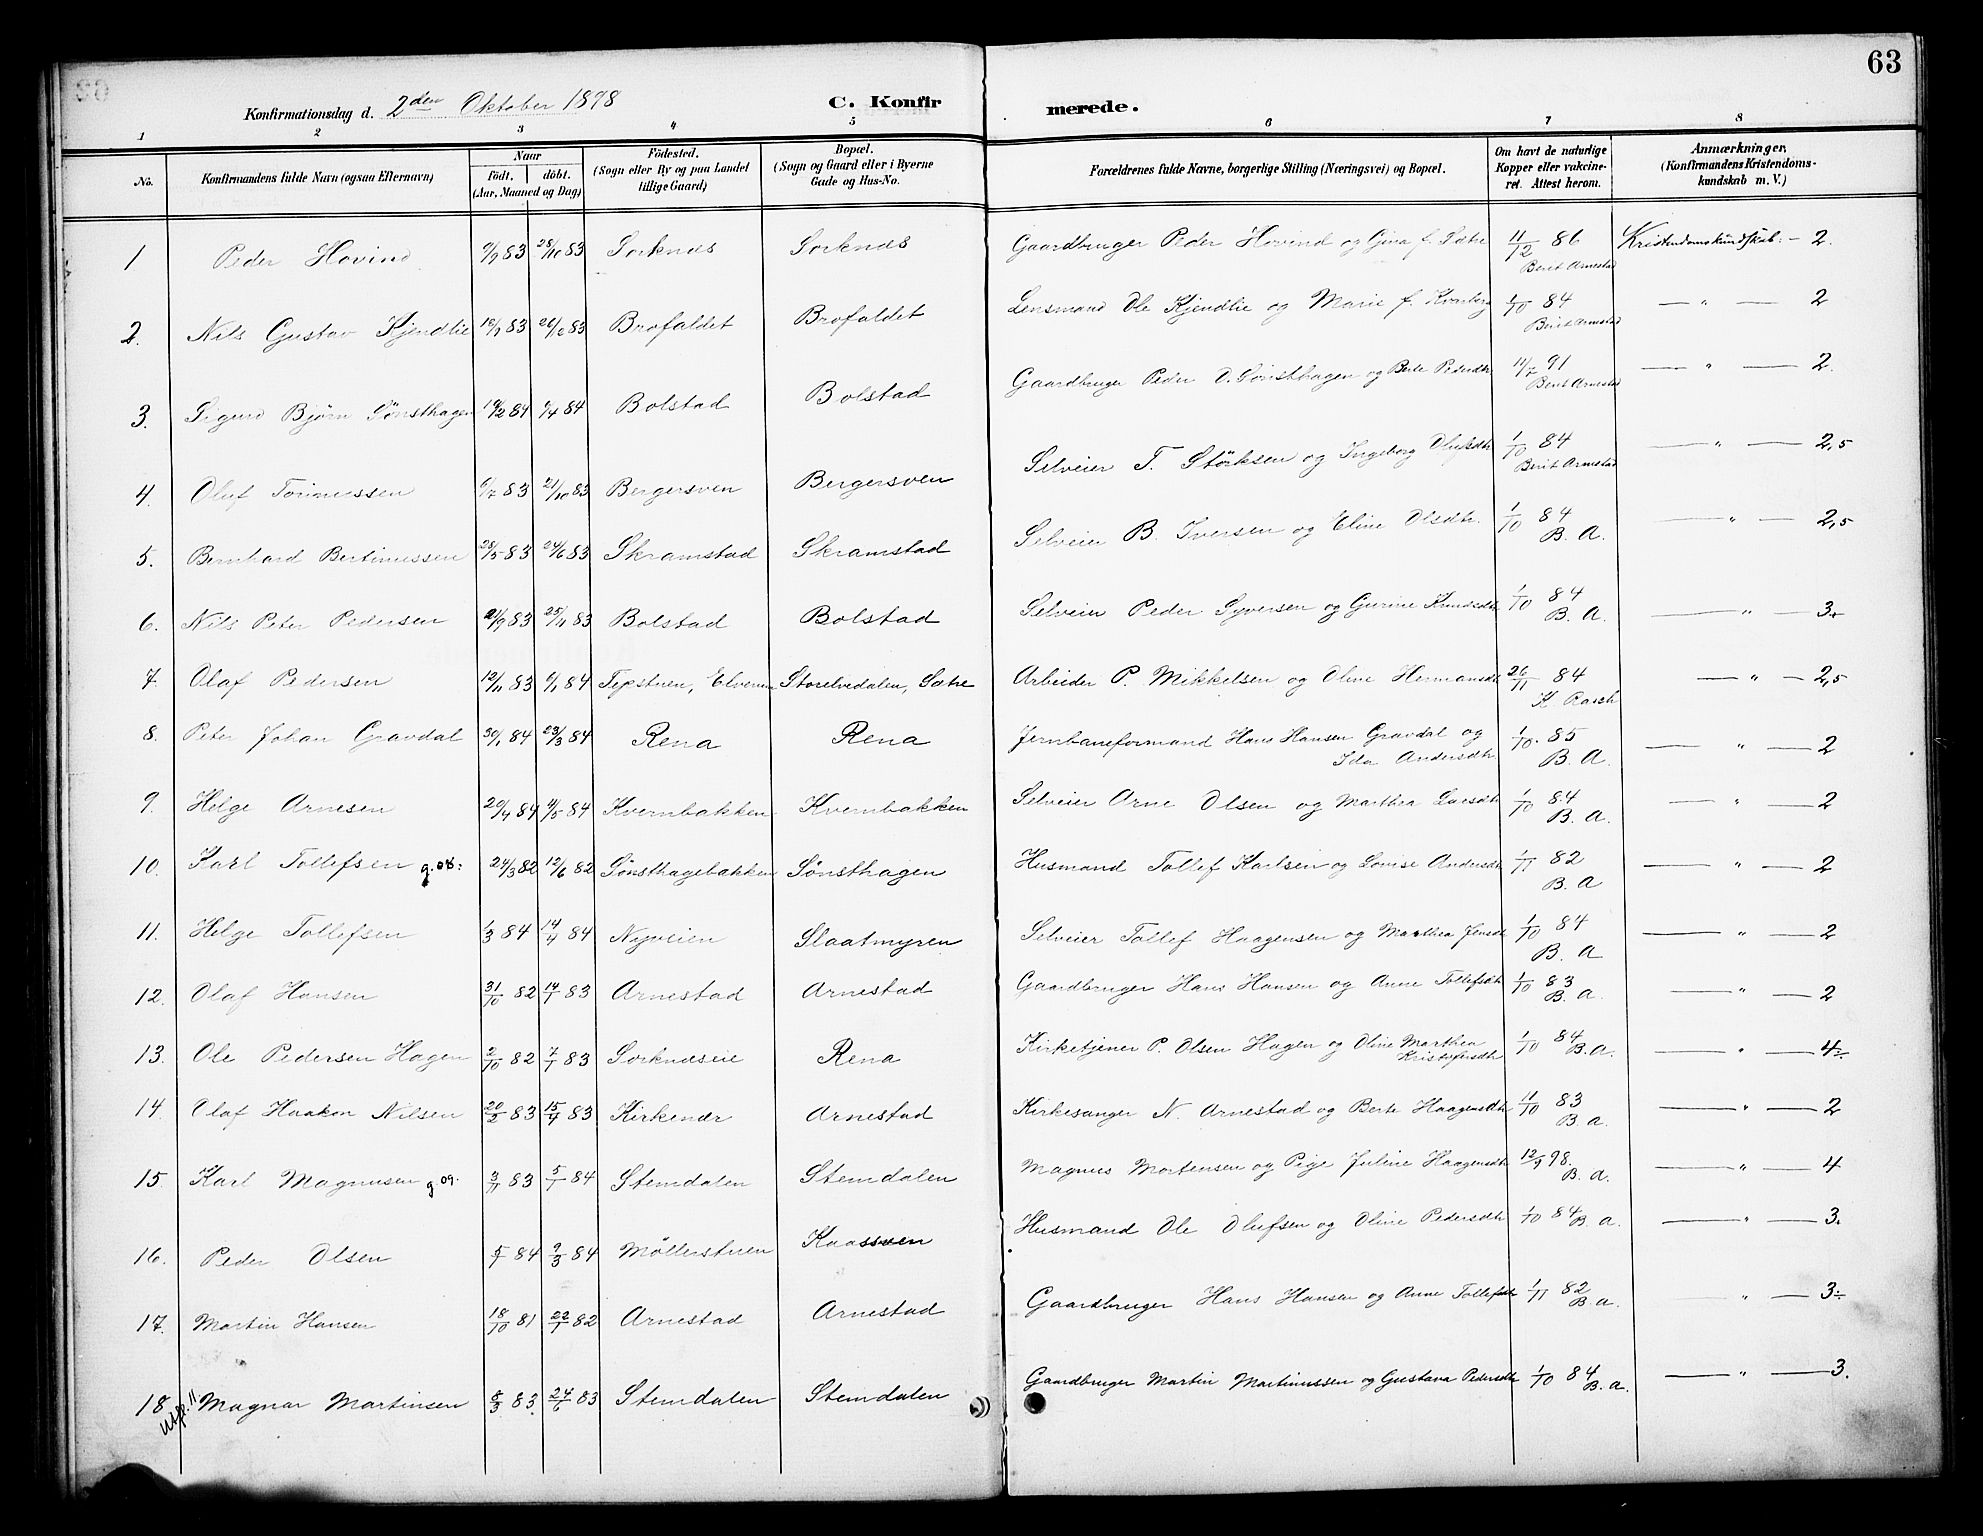 63
Konfirmationsdag d. 2den Oktober 1898
C. Konfir merede.
1 2 3 4 5 6 7 8
No. Konfirmandens fulde Navn (ogsaa Efternavn) Naar født. døbt. (Aar, Maaned og Dag) Fødested. (Sogn eller By og paa Landet tillige Gaard) Bopæl. (Sogn og Gaard eller i Byerne Gade og Hus-No. Forældrenes fulde Navne, borgerlige Stilling (Næringsvei) og Bopæl. Om havt de naturlige Kopper eller vakcineret. Attest herom. Anmærkninger. (Konfirmandens Kristendomskundskab m. V.)
1 Peder Hovind 9/9 83 28/10 83 Sorknæs Sorknæs Gaardbruger Peder Hovind og Gina f. Sætre 11/12 86 Berit Arnestad Kristendomskundskab. – 2.
2. Nils Gustav Kjendlie 83 83 Brofaldet Brofaldet Lensmand Ole Kjendlie og Marie f. Kvarberg 1/10 84 Berit Arnestad — " — 2
3. Sigurd Bjørn Sønsthagen 84 84 Bolstad Bolstad Gaardbruger Peder O. Sønsthagen og Berte Pedersdtr 11/7 91 Berit Arnestad — " — 2.
4. Oluf Torinussen 83 21/10 83 Bergersven Bergersven Selveier T. Størksen og Ingeborg Olufsdtr 1/10 84 Berit Arnestad — " — 2,5
5. Bernhard Bertinussen 28/5 83 24/6 83 Skramstad Skramstad Selveier B. Iversen og Eline Olsdtr. 1/10 84 B. A. — " — 2,5
6. Nils Peter Pedersen 21/9 83 25/11 83 Bolstad Bolstad Selveier Peder Syversen og Gurine Knudsdtr 1/10 84 B. A. — " — 3÷
7. Olaf Pedersen 12/11 83 6/1 84 Tepstuen, Elverum Storelvedalen, Sætre Arbeider P. Mikkelsen og Oline Hermansdtr 26/11 84 K. Rasch — " — 2,5
8. Peter Johan Gravdal 30/1 84 23/3 84 Rena Rena Jernbaneformand Hans Hansen Gravdal og Ida Andersdtr 1/10 85 B. A. — " — 2
9. Helge Arnesen 20/4 84 11/5 84 Kvernbakken Kvernbakken Selveier Arne Olsen og Marthea Larsdtr 1/10 84 B. A. — " — 2
10. Karl Tollefsen g. 08. 24/3 82 12/6 82 Sønsthagebakken Sønsthagen Husmand Tollef Karlsen og Lovise Andersdtr 1/11 82 B. A — " — 2
11. Helge Tollefsen 1/3 84 14/4 84 Nyveien Slaatmyren Selveier Tollef Haagensen og Marthea Jensdtr 1/10 84 B. A — " — 2
12. Olaf Hansen 31/10 82 14/1 83 Arnestad Arnestad Gaardbruger Hans Hansen og Anne Tollefsdtr 1/10 83 B. A. — " — 2
13. Ole Pedersen Hagen 2/10 82 7/1 83 Sorknæseie Rena Kirketjener P. Olsen Hagen og Oline Marthea Kristofersdtr 1/10 84 B. A. — " — 4÷
14. Olaf Haakon Nilsen 20/2 83 15/4 83 Kirkenær Arnestad Kirkesanger N. Arnestad og Berte Haagensdtr 11/10 83 B. A. — " — 2
15 Karl Magnusen g. 09. 3/11 83 5/1 84 Stemdalen Stemdalen Magnus Mortensen og Pige Juline Haagensdtr 12/9 98. B. A. — " — 4
16. Peder Olsen 84 9/3 84 Møllerstuen Kaassven Husmand Ole Olufsen og Oline Pedersdtr 1/10 84 B. A. — " — 3.
17. Martin Hansen 18/10 81 22/1 82 Arnestad Arnestad Gaardbruger Hans Hansen og Anne Tollefsdtr 1/11 82 B. A. — " — 3÷
18 Utfl. 11. Magnar Martinsen 8/3 83. 24/6 83 Stemdalen Stemdalen Gaardbruger Martin Martinussen og Gustava Pedersdtr 1/10 84 B. A. — " — 3.